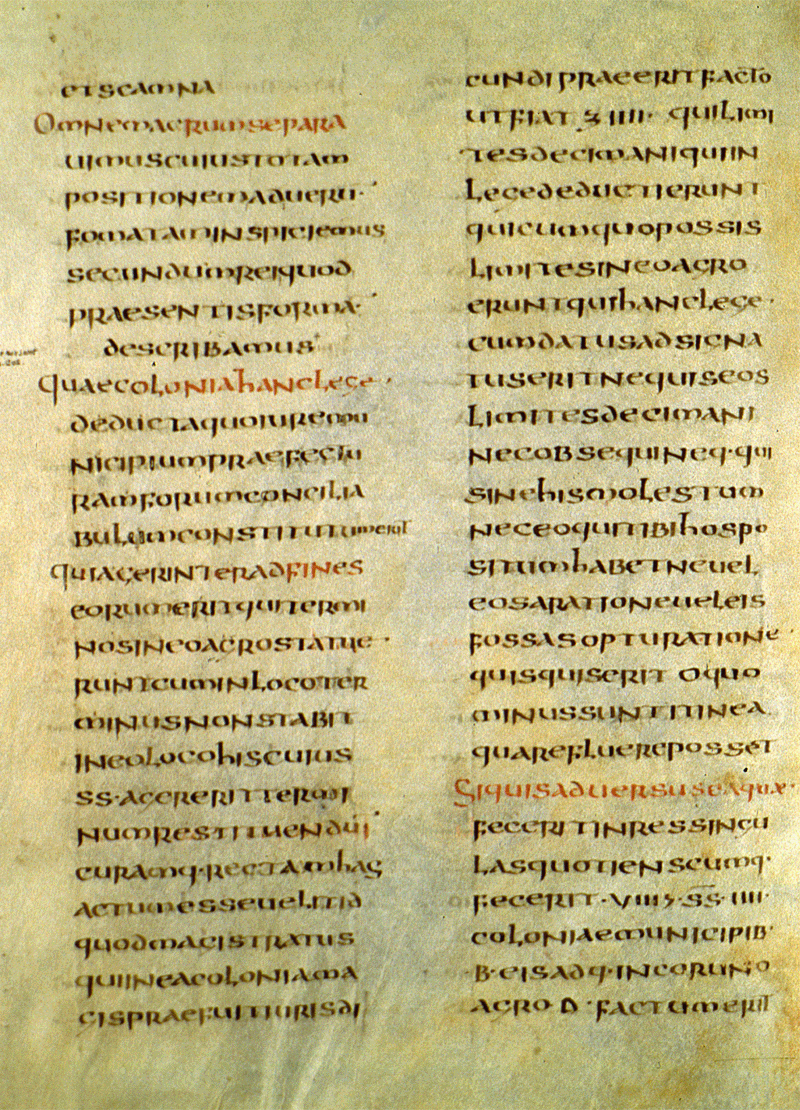 eiscamna
Omnemagrumsepara
uimuscuiustotam
positionemadueru·
fomatadinspiciemus
secundumreiquod
praesentisforma·
describamus
quaecoloniahanclege·
deductaquoiuremu
nicipiumpraefectu
ramforumconcilia
bulumconstitutumerit
quiagerinteradfines
eorumeritquitermi
nosineoagrostatue·
runtcuminlocoter
minusnonstabit
ineolocohiscuius
ss·agereritteromi
numrestituendui
curamq·rectamhac
actumesseuelitid
quodmagistratus
quiineacoloniama
gispraefuitiurisdi
cundipraeeritfacto
utfiat s iiii· quilimi
tesdecimaniquiin
legedeductierunt
quicumquopossis
limitesineoagro
eruntquihanclege·
cumdatusadsigna
tuseritnequiseos
limitesdecimani
necobsequineq·qui
sinehismolestum
neceoquitibihospo
situmhabetneuel
eosarationeueleis
fossasopturatione·
quisquiserit oquo
minussuntitinea
quarefluereposset
Siquisaduersuseaquae·
feceritinressingu
lasquotienscumq·
fecerit·ss·iiii·
coloniaemunicipib·
b·eisadq·incoruno
agro d·factumerit